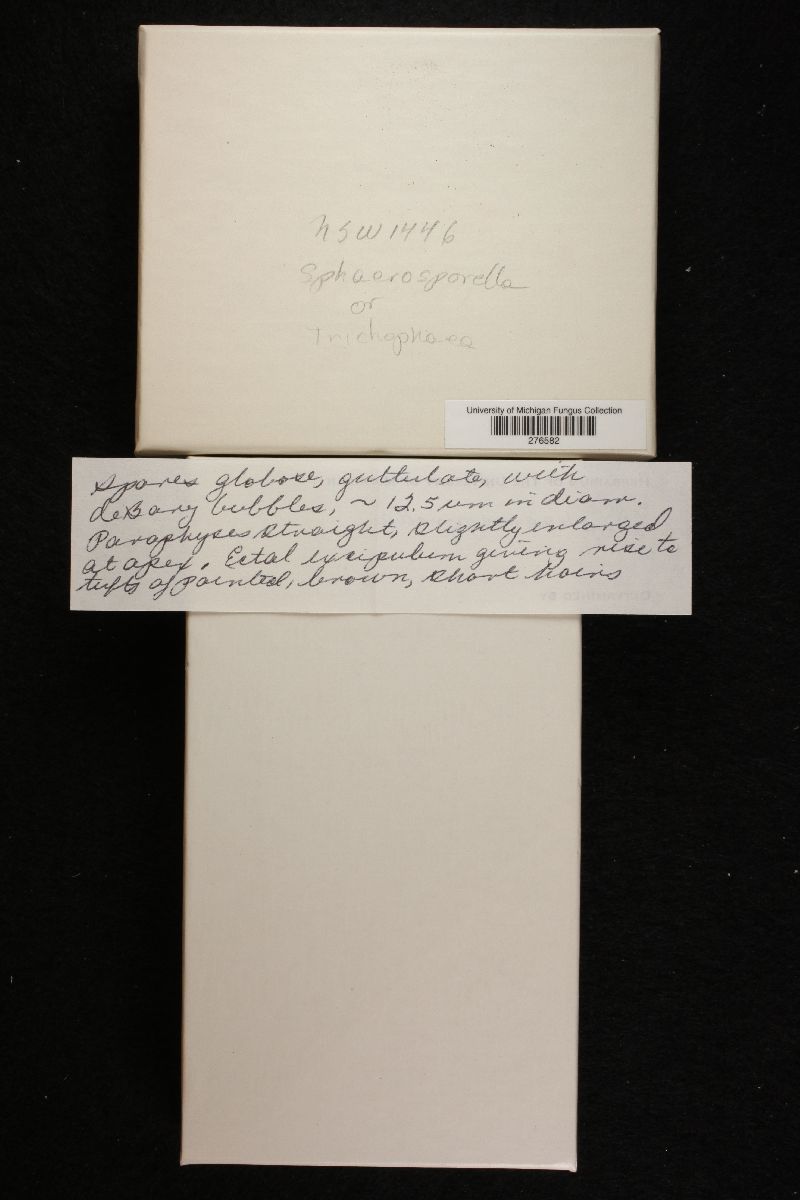 NSW 1446
Sphaerosporella
or
Trichophaea
University of Michigan Fungus Collection
276582
Spores globose, guttulate, with
deBary bubbles, ~ 12.5 um in diam.
Paraphyses straight, slightly enlarged
at apex. Ectal excipulum giving rise to
tufts of pointed, brown, short hairs